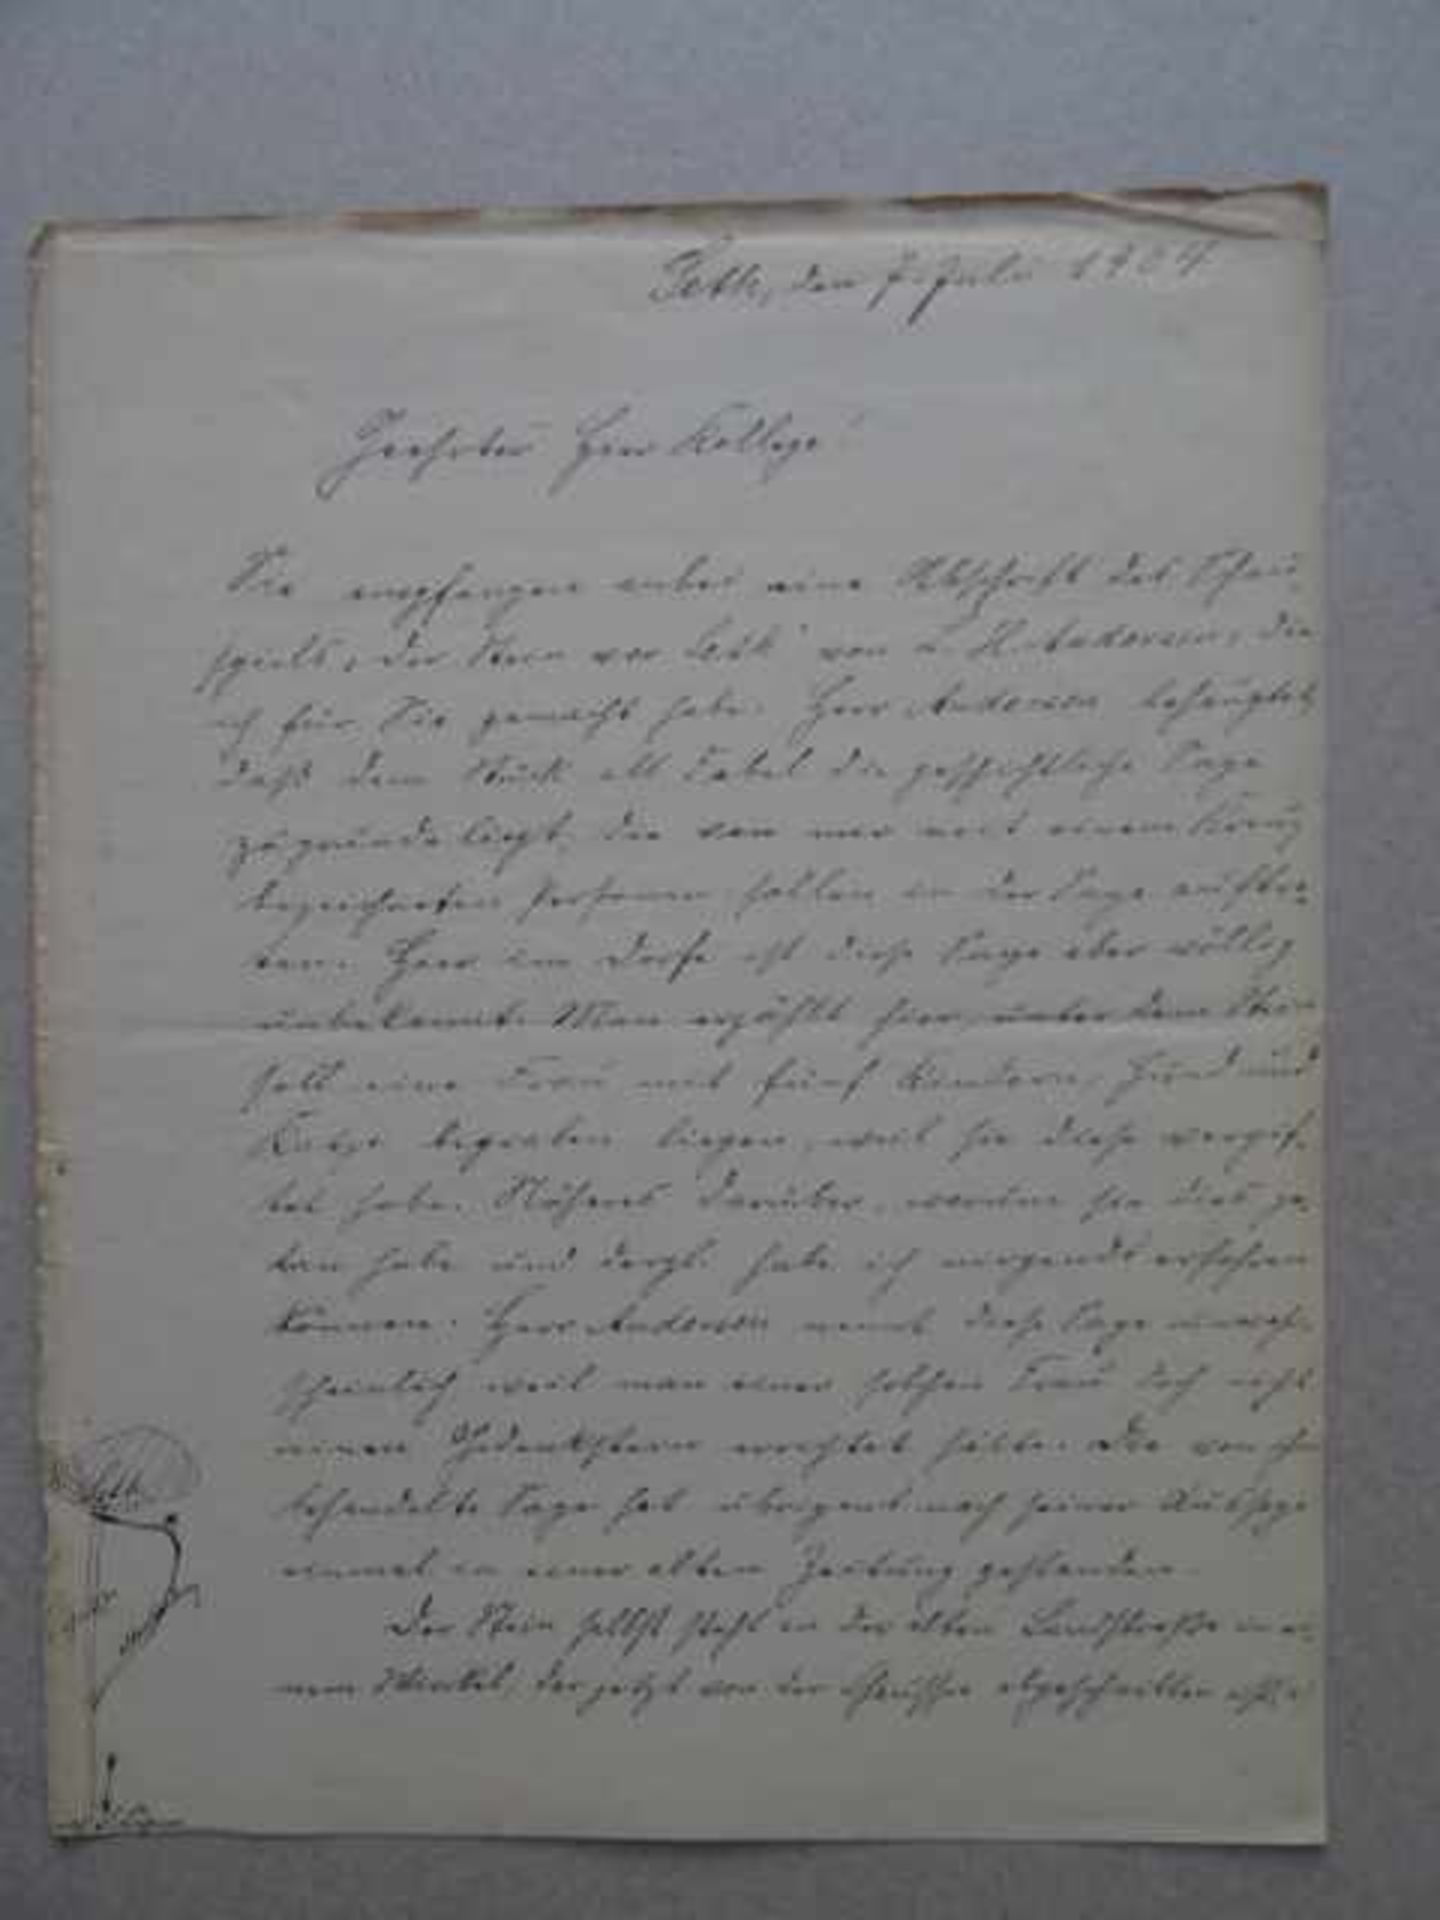 Seth, den 7. Juli 1904
Geehrter Herr Kollege!
Sie empfangen anbei eine Abschrift des Schau-
spiels „Der Stein vor Seth" von L. H. Andersen, die
ich für Sie gemacht habe. Herr Andersen behauptet
daß dem Stück als Fabel die geschichtliche Sage
zugrunde liegt, die von mir mit einem Kreuz
bezeichneten Personen sollen in der Sage auftre-
ten. Hier im Dorfe ist diese Sage aber völlig
unbekannt. Man erzählt hier, unter dem Stein
soll eine Frau mit fünf Kindern, Hund und
Katze begraben liegen, weil sie diese vergif-
tet habe. Näheres darüber, warum sie dies ge-
tan habe und dergl. habe ich nirgends erfahren
können. Herr Andersen nennt diese Sage unwahr-
scheinlich weil man einer solchen Frau doch nicht
einen Gedenkstein errichtet hätte. Die von ihm
behandelte Sage hat übrigens nach seiner Aussage
einmal in einer alten Zeitung gestanden.
Der Stein selbst steht an der alten Landstraße in ei-
nem Winkel, der jetzt von der Chaussee abgeschnitten ist
Seth